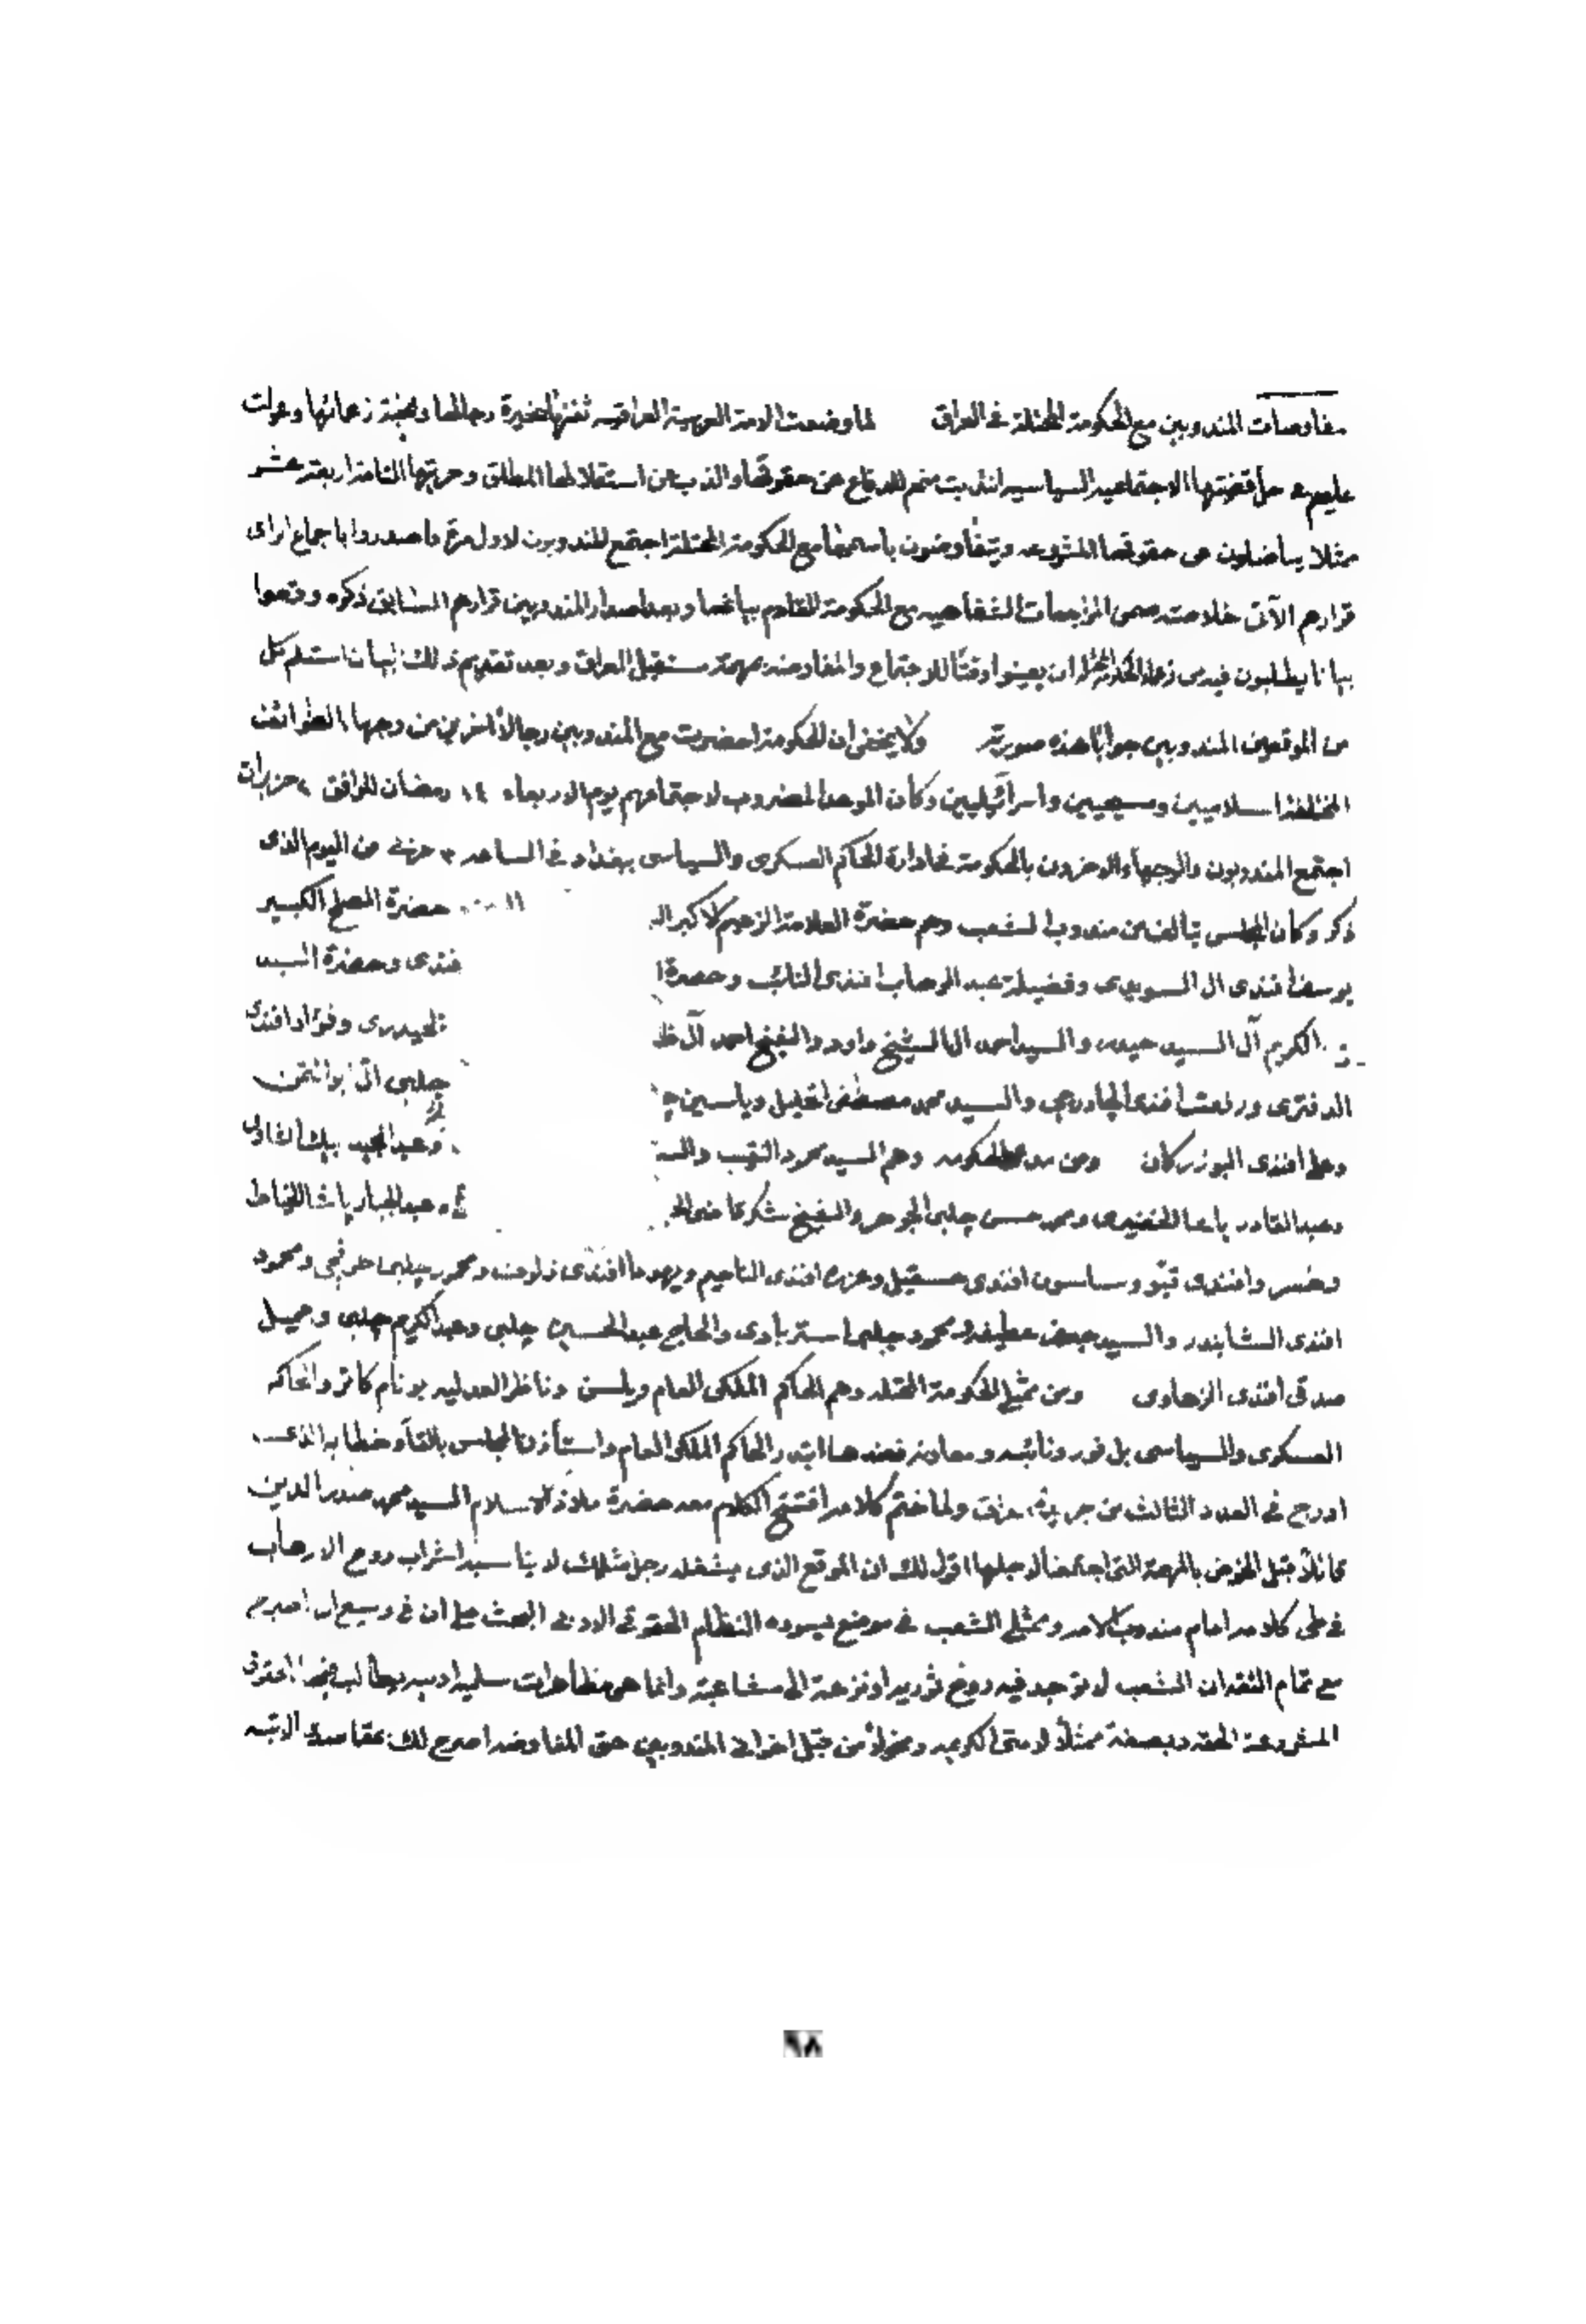 مفاوضات المندوبين مع الحكومة المحتلة في العراق لما وضعت الامة العربية العراقيه ثقتها بخيرة رجالها ونخبة زعمائها وعولت
عليهم حل قضيتها الاجتماعيه السياسيه انتدبت منهم للدفاع عن حقوقها والذب عن استقلالها المطلق وحريتها التامة اربعة عشر
ممثلا يناضلون عن حقوقها المشروعه ويتفاوضون باسمها مع الحكومة المحتلة اجتمع المندوبون لاول مرة فاصدروا باجماع اراى
قرارهم الآتى خلاصته المراجعات الشفاهيه مع الحكومة وبعد اصدار المندوبين قرارهم السابق ذكره وقعوا
بيانا يطلبون فيه ان يعينوا وقتًا للاجتماع والمفاوضة بمهمة مستقبل العراق وبعد تقديم ذلك البيان استلم كل
من الموقعين المندوبين جوابًا هذه صورته ولا يخفى ان الحكومة احضرت مع المندوبين رجالا آخرين من وجهاء الطوائف
المختلفة اسلاميين ومسيحيين واسرائيليين وكان الموعد المضروب لاجتماعهم يوم الاربعاء ١٤ رمضان الموافق ٢ حزيران
اجتمع المندوبون والوجهاء بالحكومة في ادارة الحاكم العسكرى والسياسى ببغداد في الساعه من اليوم الذى
ذكر وكان المجلس يتألف من مندوبى الشعب وهم حضرة العلامة الزعيم الاكبر حضرة المصلح الكبير
يوسف افندى ال السويدى وفضيلة عبد الوهاب افندى النائب وحضرة فندى وحضرة السيد
الكريم آل السيد حيدر والسيد احمد ال الشيخ داود والشيخ احمد آل لحيدرى وفؤاد افندى
الدفترى ورفعت افندى الجادرجى والسيد محمد مصطفى الخليل وياسين چلبى ال ابو التمن
وعلى افندى البوزركان ومن الحكومه وهم السيد محمود النقيب وعبد المجيد بيك الشاوى
وعبد القادر باشا الخضيرى ومحمد حسن چلبى الجوهر والشيخ شكر قاضى عبد الجبار باشا الخياط
وخسرو افندى قيو وساسون افندى حسقيل وعزره افندى الناحيم ويهودا افندى زلوف ومحمود چلبى ومحمود
افندى الشابندر والسيد جعفر عطيفه ومحمود چلبى استربادى والحاج عبد الحسين چلبى وعبد الكريم چلبى وجميل
صدقى افندى الزهاوى ومن ممثلى الحكومة المحتله وهم الحاكم الملكى العام ويلسن وناظر العدليه بونام كارتر والحاكم
العسكرى والسياسى بلفور ونائبه ومعاونه فعندها ابتدر الحاكم الملكى العام واستأذن المجلس بالقاء خطابه الذى
ادرج في العدد الثالث من جريدة ولما ختم كلامه افتتح الكلام معه حضرة ملاذ الاسلام السيد محمد صدر الدين
قائلاً قبل الخوض بالمهمة التى اجتمعنا لاجلها اقول لك ان الموقع الذى يشغله رجل مثلك لا يناسبه اشراب روح الارهاب
في طى كلامه امام مندوبى الامه وممثلى الشعب في موضع يسوده النظام الحقوقى الادبى البحث على ان في وسعى ان اصرح
مع تمام الثقه ان الشعب لا توجد فيه روح ثوريه او نزعة الى مشاغبة وانما هى مظاهرات سلميه ادبيه يطالب فيها الحقوق
المشروعة الحقه وبصفة ممثلاً لامتى الكريمه ومخولاً من قبل اخوانى المندوبين حق المفاوضه اصرح لك بمقاصدى الاتيه
٩٨